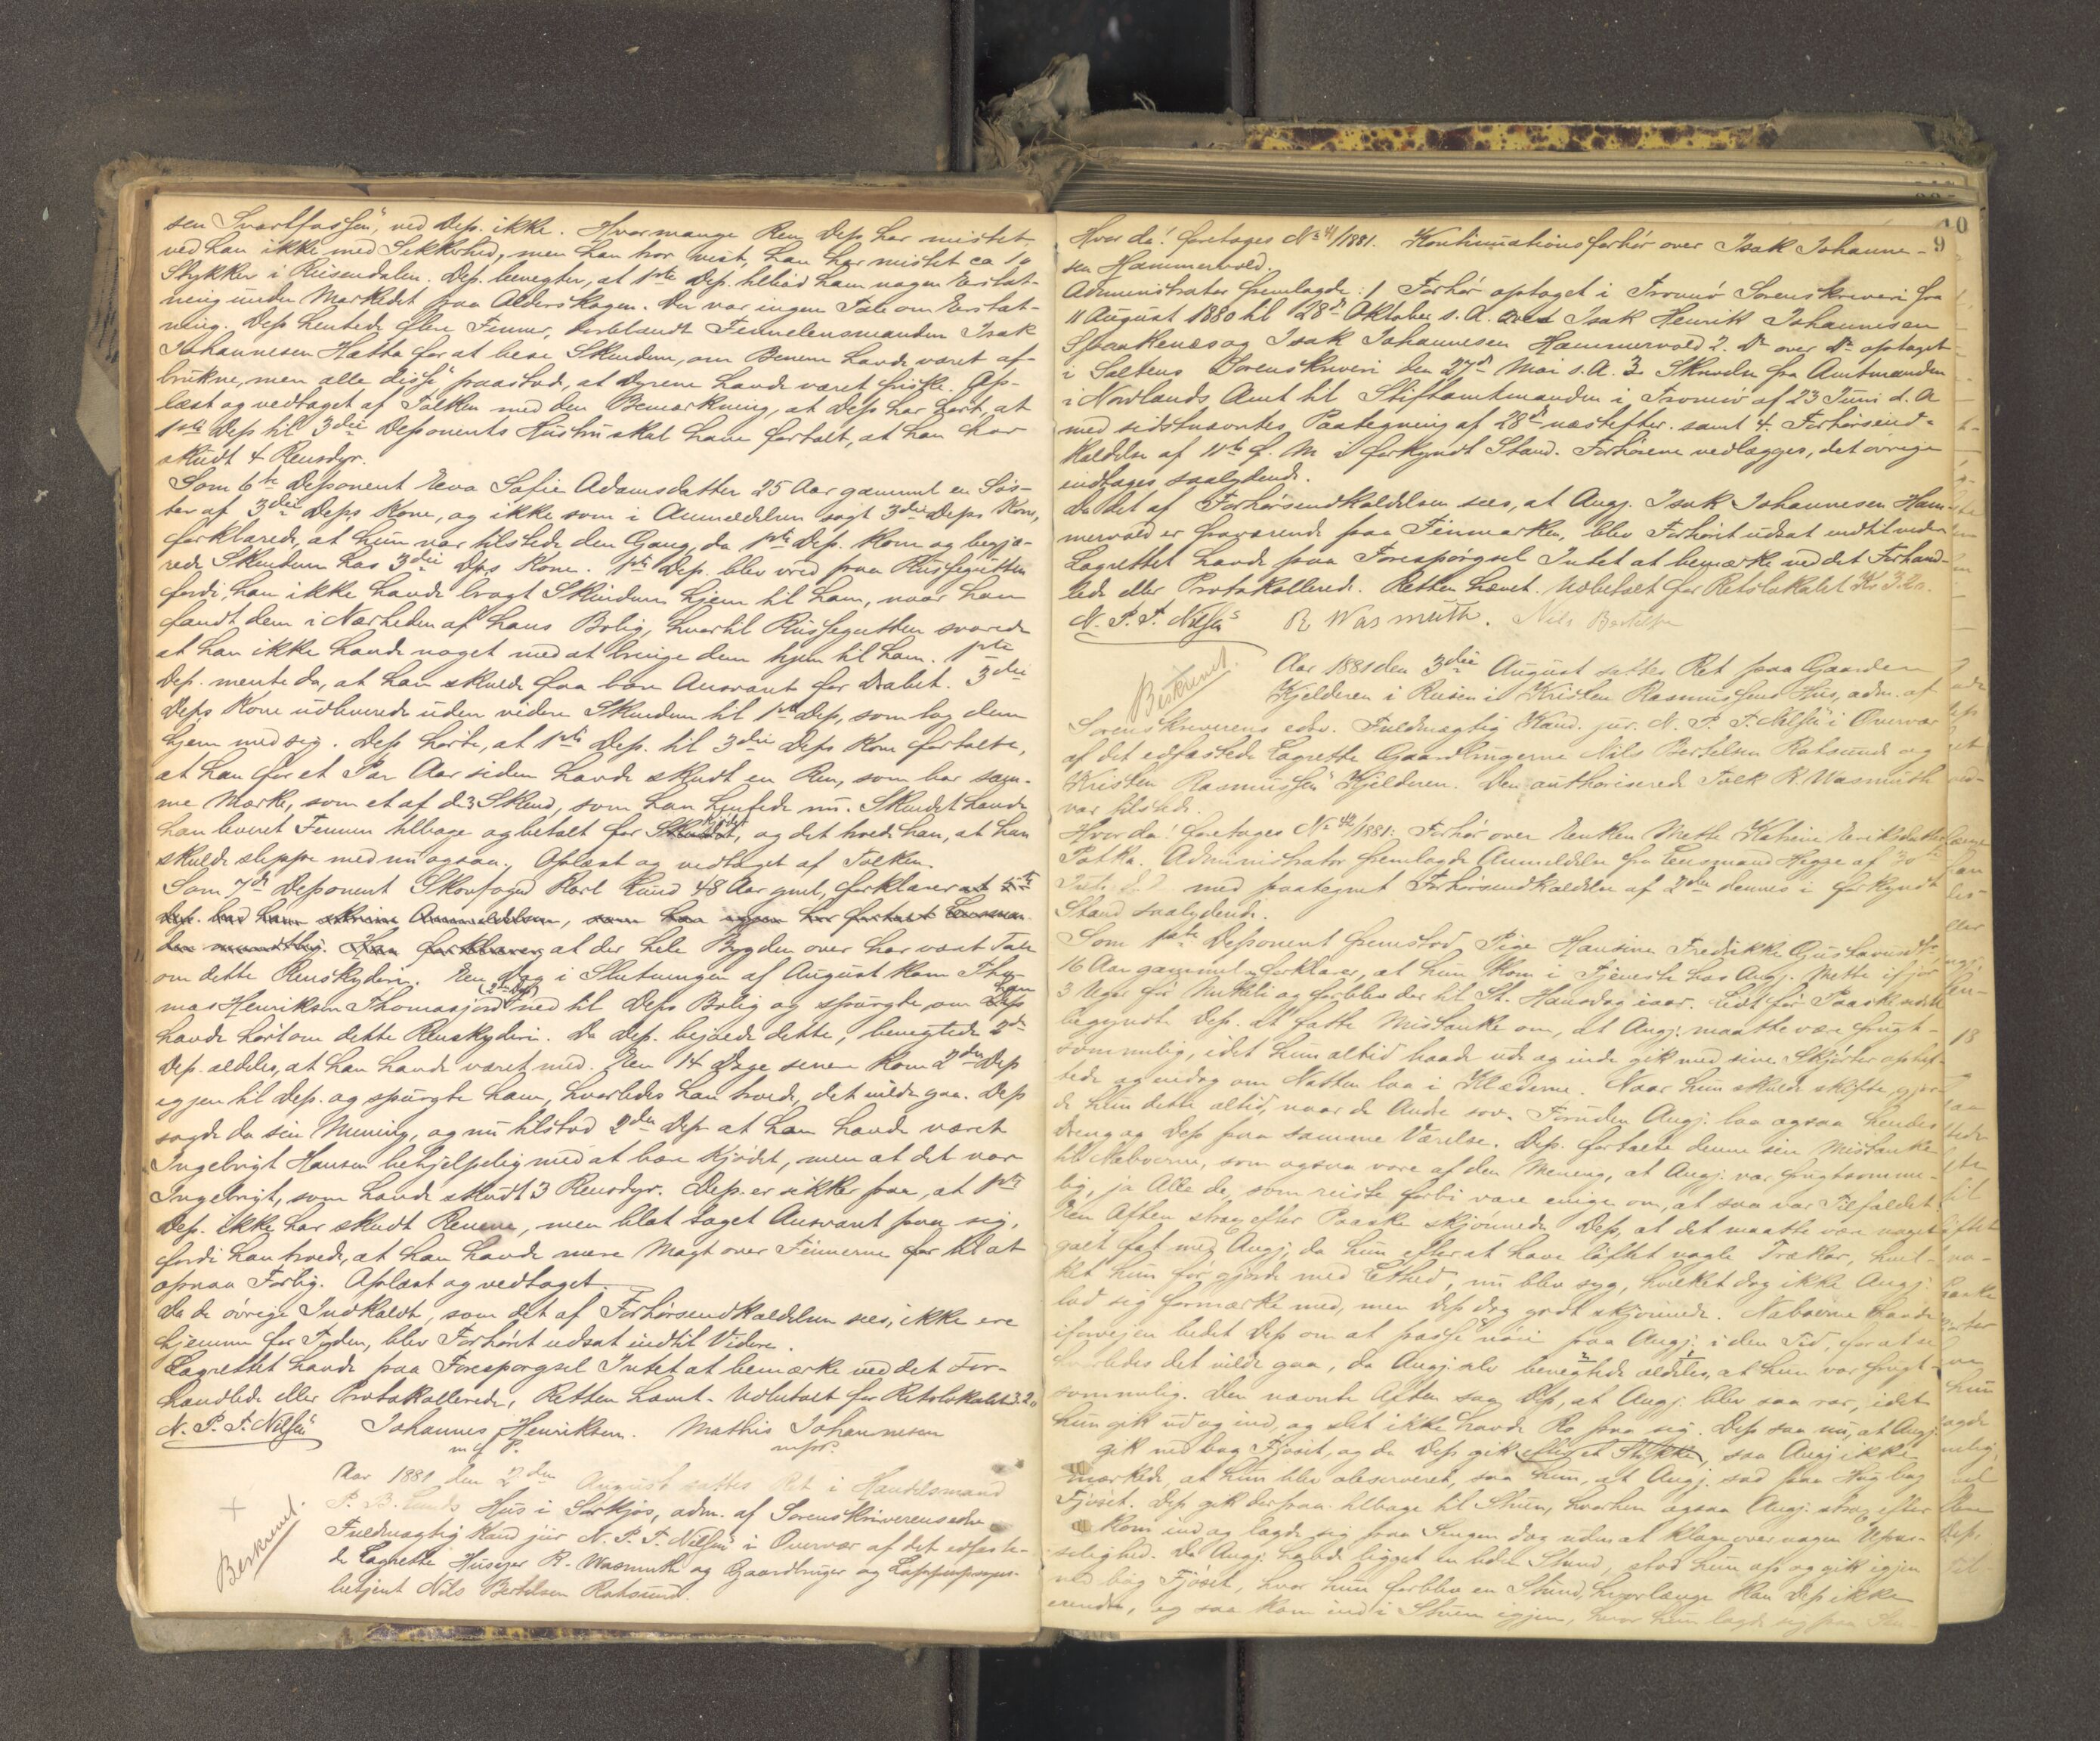 sen Svartfossen", ved Dep. ikke. Hvormange Ren Dep. har mistet
ved han ikke med Sikkerhed, men han tror vist, han har mistet ca 10
Stykker i Reisendalen. Dep. benegter, at 1ste Dep. tilbød ham nogen Erstat-
ning under Markedet paa Alderskogen. Der var ingen Tale om Erstat-
ning. Dep hentede flere Finner, deriblandt Finnelensmanden Isak
Johannesen Hætta for at bese Skindene, om Benene havde været af-
brukne, men alle disse paastod, at Dyrene havde været friske. Op-
læst og vedtaget af Tolken med den Bemærkning, at Dep har hørt, at
1ste Dep til 3die Deponents Hustru skal have fortalt, at han har
skudt 4 Rensdyr.
Som 6te Deponent Eva Sofie Adamsdatter 25 Aar gammel en Søs-
ter af 3die Deps Kone, og ikke som i Anmeldelsen sagt 3die Deps Kone,
forklarede, at hun var tilstede den Gang, da 1ste Dep. kom og begjæ-
rede Skindene hos 3die Deps Kone. 1ste Dep. blev vred paa Russegutten
fordi, han ikke havde bragt Skindene hjem til ham, naar han
fandt dem i Nærheden af hans Bolig, hvortil Russegutten svarede
at han ikke havde noget med at bringe dem hjem til ham. 1ste
Dep. mente da, at han skulde faa bære Ansvaret for Drabet. 3die
Deps Kone udleverede uden videre Skindene til 1ste Dep, som tog dem
hjem med sig. Dep hørte, at 1ste Dep. til 3die Deps Kone fortalte,
at han for et Par Aar siden havde skudt en Ren, som bar sam-
me Mærke, som et af de 3 Skind, som han hentede nu. Skindet havde
han leveret Finnen tilbage og betalt for Kjødet, og det troede han, at han
skulde slippe med nu ogsaa. Oplæst og vedtaget af Tolken.
Som 7de Deponent Skovfoged Karl Lund 48 Aar gml, forklarer at 5te
Dep. bad ham skrive Anmeldelsen, som han igjen har fortalt Lensman
den mundtlig. Han forklarer, at der hele Bygden over har været Tale
om dette Renskyderi. En Dag i Slutningen af August kom Tho-
mas Henriksen Thomasjord (2den Dep) ned til Deps Bolig og spurgte, om ham Dep
havde hørt om dette Renskyderi. Da Dep. bejaede dette, benegtede 2den
Dep. aldeles, at han havde været med. En 14 Dage senere kom 2den Dep
igjen til Dep. og spurgte ham, hvorledes han troede, det vilde gaa. Dep
sagde da sin Mening, og nu tilstod 2den Dep at han havde været
Ingebrigt Hansen behjelpelig med at bære Kjødet, men at det var
Ingebrigt, som havde skudt 3 Rensdyr. Dep. er sikker paa, at 1ste
Dep. ikke har skudt Renene, men blot taget Ansvaret paa sig,
fordi han troede, at han havde mere Magt over Finnerne for til at
opnaa Forlig. Oplæst og vedtaget.
Da de øvrige Indkaldte, som det af Forhørsindkaldelsen sees, ikke ere
hjemme for Tyden, blev Forhøret udsat indtil Videre.
Lagrettet havde paa Forespørgsel Intet at bemærke ved det For-
handlede eller Protokollerede, Retten hævet. Udbetalt for Retslokalet 3.20
N. P. T. Nilsen Johannes Henriksen. Mathis Johannesen
m f P. m f P.
Beskrevet.
Aar 1881 den 2den August sattes Ret i Handelsmand
P. B. Lunds Hus i Sørkjos, adm. af Sorenskriverens edsv
Fuldmægtig Kand jur N. P. T. Nilsen i Overvær af det edfæste-
de Lagrette Huseier R. Wasmuth og Gaardbruger og
betjent Nils Bertelsen Rotsund.
9
10
Hvor da: foretoges No 41/1881. Kontinuationsforhør over Isak Johanne-
sen Hammervold.
Administrator fremlagde: 1 Forhør optaget i Tromsø Sorenskriveri fra
11 August 1880 til 28de Oktober s. A. over Isak Henrik Johannesen
Spaakenæs og Isak Johannesen Hammervold 2. Do over Do optaget
i Saltens Sorenskriveri den 27de Mai s. A. 3. Skrivelse fra Amtmanden
i Nordlands Amt til Stiftamtmanden i Tromsø af 23 Juni d. A
med sidstnævntes Paategning af 28de næstefter. samt 4. Forhørsind-
kaldelse af 11te f. M i forkyndt Stand. Forhørene vedlægges, det øvrige
indtages saalydende.
Da det af Forhørsindkaldelsen sees, at Angj. Isak Johannesen Ham-
mervold er fraværende paa Finmarken, blev Forhøret udsat indtil videre
Lagrettet havde paa Forespørgsel Intet at bemærke ved det Forhand-
lede eller Protokollerede. Retten hævet. Udbetalt for Retslokalet Kr 3.20.
N. P. T. Nilsen R Wasmuth. Nils Bertelsen
Beskrevet.
Aar 1881 den 3die August sattes Ret paa Gaarden
Kjelderen i Reisen i Kristen Rasmussens Hus, adm. af
Sorenskriverens edsv. Fuldmægtig Kand. jur. N. P. T. Nilsen i Overvær
af det edfæstede Lagrette Gaardbrugerne Nils Bertelsen Rotsund og
Kristen Rasmussen Kjelderen. Den authoriserede Tolk R. Wasmuth
var tilstede.
Hvor da: foretoges No 42/1881: Forhør over Enken Mette Katrine Eriksdatter
Potka. Administrator fremlagde Anmeldelse fra Lensmand Higge af 30
Juli med paategnet Forhørsindkaldelse af 2den dennes i forkyndt
Stand saalydende.
Som 1ste Deponent fremstod Pige Hansine Fredrikke Gustavsdtr,
16 Aar gammel og forklarer, at hun kom i Tjeneste hos Angj. Mette ifjor
3 Uger før Mikkeli og forblev der til St. Hansdag iaar. Lidt før Paaske sidste
begyndte Dep. at fatte Mistanke om, at Angj. maatte være frugt-
sommelig, idet hun altid baade ude og inde gik med sine Skjørter ophef-
tede og endog om Natten laa i Klæderne. Naar hun skulde skifte, gjor-
de hun dette altid, naar de Andre sov. Foruden Angj. laa ogsaa hendes
Dreng og Dep paa samme Værelse. Dep. fortalte denne sin Mistanke
til Naboerne, som ogsaa vare af den Mening, at Angj. var frugtsomme-
lig, ja Alle de, som reiste forbi vare enige om, at saa var Tilfældet.
En Aften strax efter Paaske skjønnede Dep, at det maatte være noget
galt fat med Angj, da hun efter at have løftet nogle Trækler, hvil-
ket hun før gjorde med Lethed, nu blev syg, hvilket dog ikke Angj.
lod sig formærke med, men Dep dog godt skjønnede. Naboerne havde
iforveien bedet Dep om at passe nøie paa Angj. i den Tid, for at se
hvorledes det vilde gaa, da Angj. selv benegtede aldeles, at hun var frugt-
sommelig. Den nævnte Aften saa Dep, at Angj. blev saa rar, idet
hun gik ud og ind, og slet ikke havde Ro paa sig. Dep saa nu, at Angj
gik ned bag Fjøset, og da Dep gik efter et Stykke, saa Angj ikke
mærkede, at hun blev observeret, saa hun, at Angj. sad paa Hug bag
Fjøset. Dep gik derpaa tilbage til Stuen, hvorhen ogsaa Angj. strax efter
kom ind og lagde sig paa Sengen dog uden at klage over nogen Upas-
selighed. Da Angj. havde ligget en liden Stund, stod hun op og gik igjen
ned bag Fjøset, hvor hun forblev en Stund, hvorlænge kan Dep ikke
erindre, og saa kom ind i Stuen igjen, hvor hun lagde sig paa